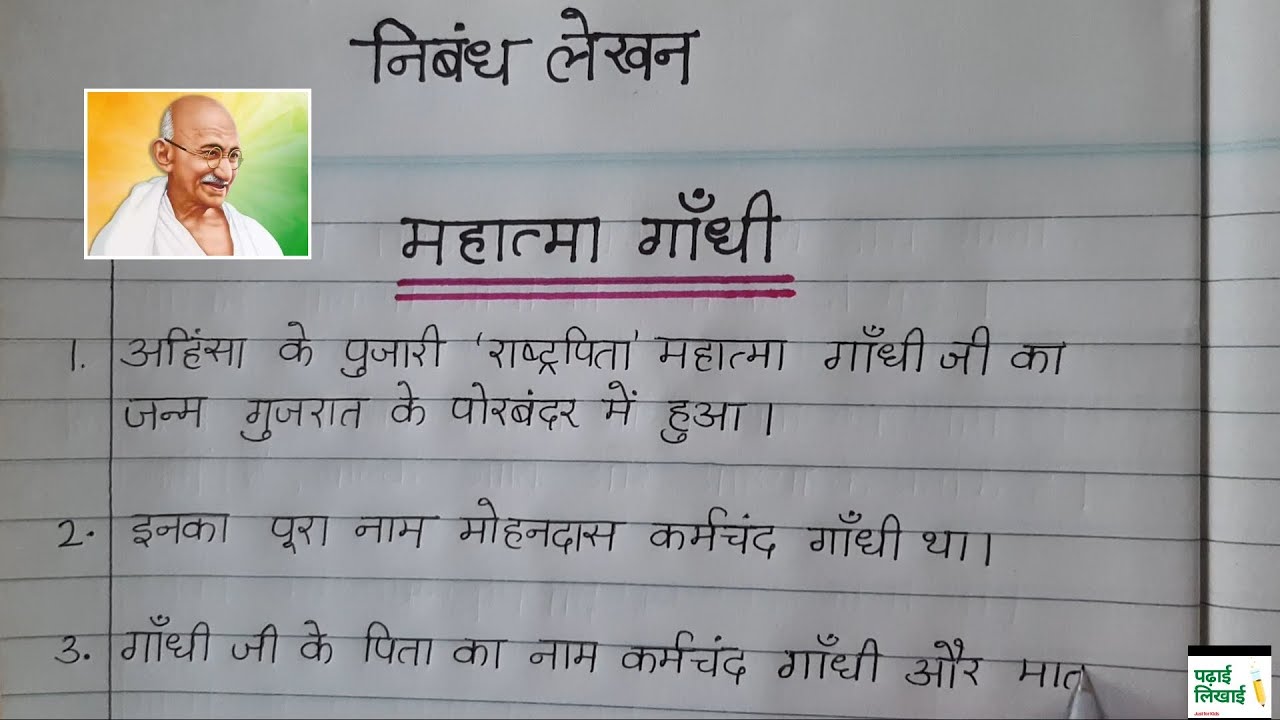 निबंध लेखन
महात्मा गाँधी
1. अहिंसा के पुजारी 'राष्ट्रपिता' महात्मा गाँधी जी का
जन्म गुजरात के पोरबंदर में हुआ।
2. इनका पूरा नाम मोहनदास कर्मचंद गाँधी था।
3. गाँधी जी के पिता का नाम कर्मचंद गाँधी और मात
पढ़ाई
लिखाई
Just for Kids